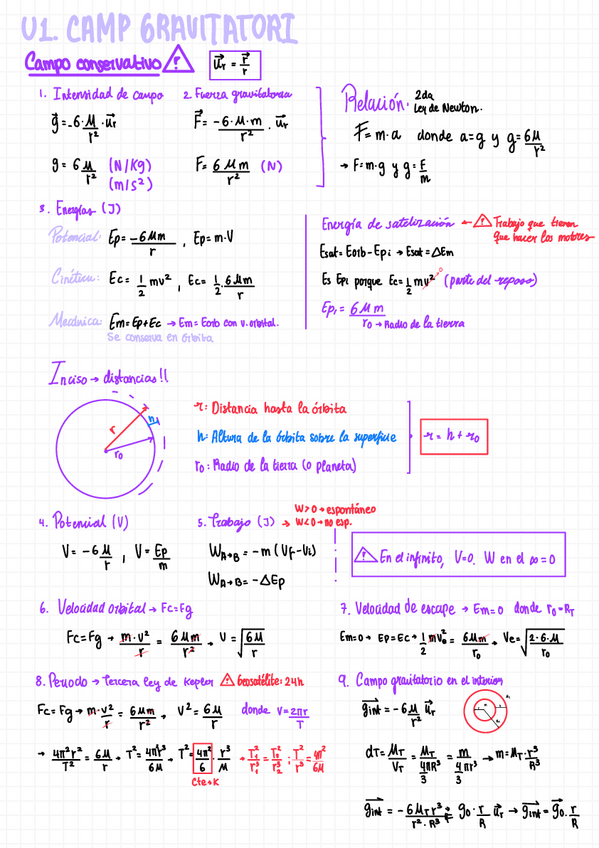 U1. CAMP GRAVITATORI
Campo conservativo ! u⃗r = r⃗/r
1. Intensidad de campo
g⃗ = -G·M/r² · u⃗r
g = G M/r² (N/Kg)
(m/s²)
2. Fuerza gravitatoria
F⃗ = -G·M·m/r² · u⃗r
F = G M m/r² (N)
Relación: 2da
Ley de Newton.
F = m·a donde a=g y g = GM/r²
→ F=m·g y g = F/m
3. Energías (J)
Potencial: Ep = -GMm/r , Ep=m·V
Cinética: Ec = 1/2 mv² , Ec = 1/2 · GMm/r
Mecánica: Em=Ep+Ec → Em=Eorb con v.orbital.
Se conserva en órbita
Energía de satelización ← ! Trabajo que tienen
que hacer los motores
Esat=Eorb-Epi → Esat=ΔEm
Es Epi porque Ec=1/2 mv² 0 (parte del reposo)
Epi = GMm/r0 → Radio de la tierra
Inciso → distancias!!
r h r0
r: Distancia hasta la órbita
h: Altura de la órbita sobre la superficie
r0: Radio de la tierra (o planeta)
r = h + r0
4. Potencial (V)
V = -GM/r , V = Ep/m
5. Trabajo (J) → W>0→espontáneo
W<0→no esp.
WA→B = -m (Vf-Vi)
WA→B = -ΔEp
! En el infinito, V=0. W en el ∞=0
6. Velocidad orbital → Fc=Fg
Fc=Fg → m·v²/r = GMm/r² → V = √(GM/r)
7. Velocidad de escape → Em=0 donde r0=RT
Em=0 → Ep=Ec → 1/2 mv0² = GMm/r0 → Ve = √(2·G·M/r0)
8. Periodo → Tercera ley de Kepler ! Geosatélite: 24h
Fc=Fg → m·v²/r = GMm/r² , v² = GM/r donde v = 2πr/T
→ 4π²r²/T² = GM/r → T² = 4π²r³/GM , T² = 4π²/G · r³/M → T1²/r1³ = T2²/r2³ ; T²/r³ = 4π²/GM
Cte→K
9. Campo gravitatorio en el interior
g⃗int = -G M/r² u⃗r
dT = MT/VT = MT/(4πR³/3) = m/(4πr³/3) → m = MT·r³/R³
g⃗int = -G MT r³/r²·R³ = g0·r/R u⃗r → g⃗int = g⃗0·r/R